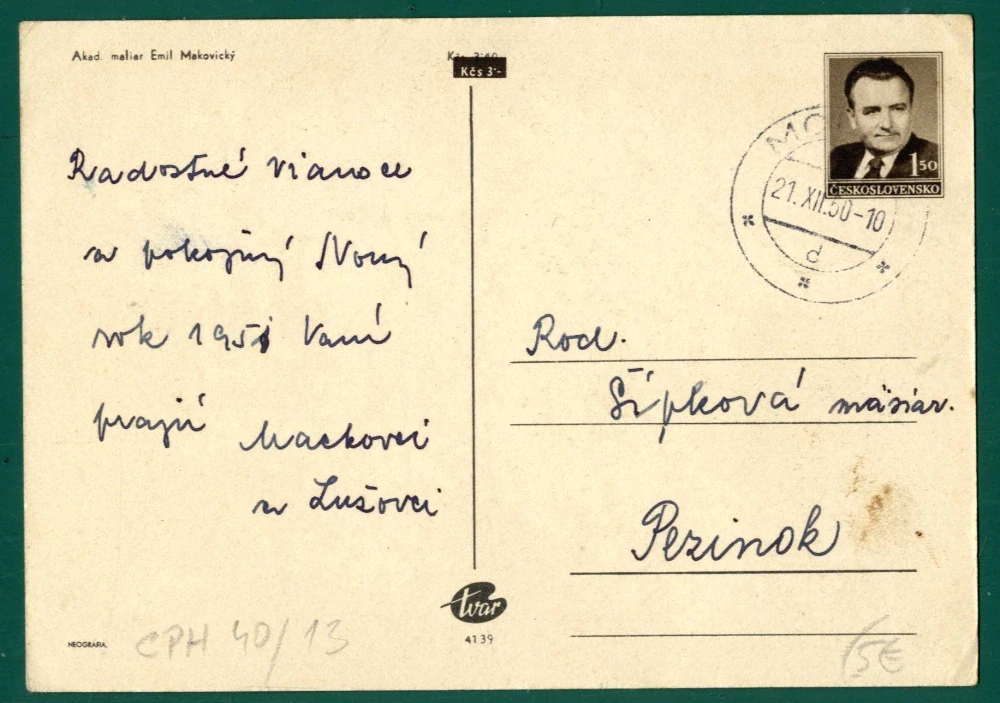 Akad. maliar Emil Makovický
Kčs 3·60
Kčs 3·-
Radostné vianoce
a pokojný Nový
rok 1951 Vám
prajú
Mackovci
a Lušovci
NEOGRAFIA.
CPH 40/13
tvar
4139
1 50
ČESKOSLOVENSKO
21.XII.50-10
d
Rod.
Šípková mäsiar.
Pezinok
5€